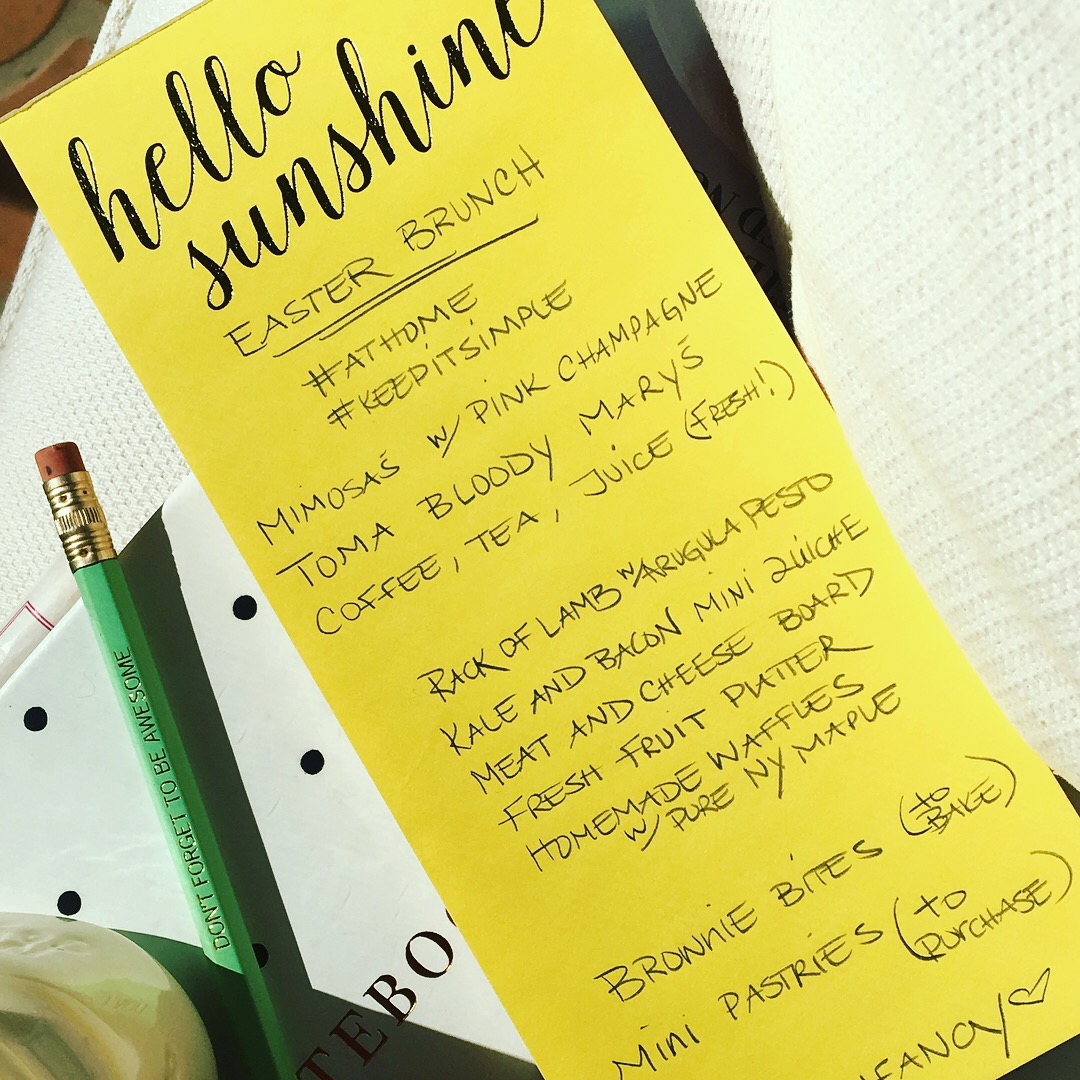 hello
sunshine
EASTER BRUNCH
#ATHOME
#KEEPITSIMPLE
MIMOSAS W/ PINK CHAMPAGNE
TOMA BLOODY MARYS
COFFEE, TEA, JUICE (FRESH!)
RACK OF LAMB W/ ARUGULA PESTO
KALE AND BACON MINI QUICHE
MEAT AND CHEESE BOARD
FRESH FRUIT PLATTER
HOMEMADE WAFFLES
W/ PURE NY MAPLE
BROWNIE BITES (TO BAKE)
MINI PASTRIES (TO PURCHASE)
DON'T FORGET TO BE AWESOME
TEBO